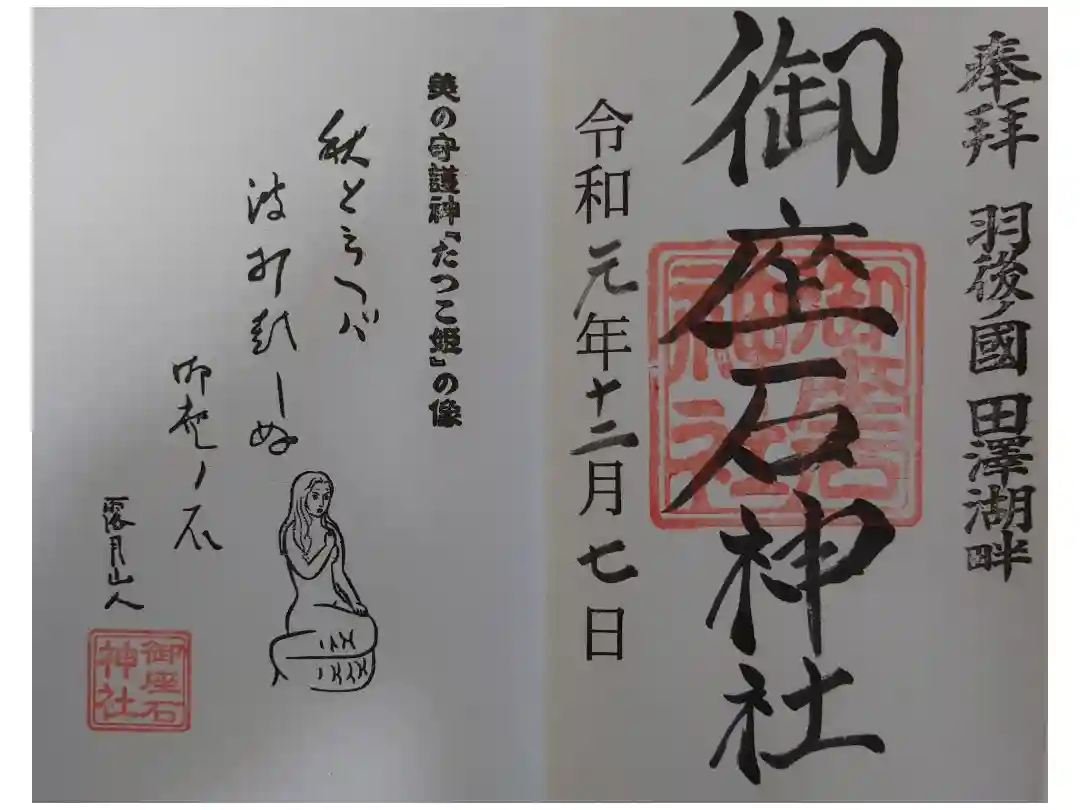 奉拝 羽後ノ國 田澤湖畔
御座石神社
御座石神社
令和元年十二月七日
美の守護神『たつこ姫』の像
秋と云へバ
波打しぬ
御座ノ石
露月山人
御座石
神社